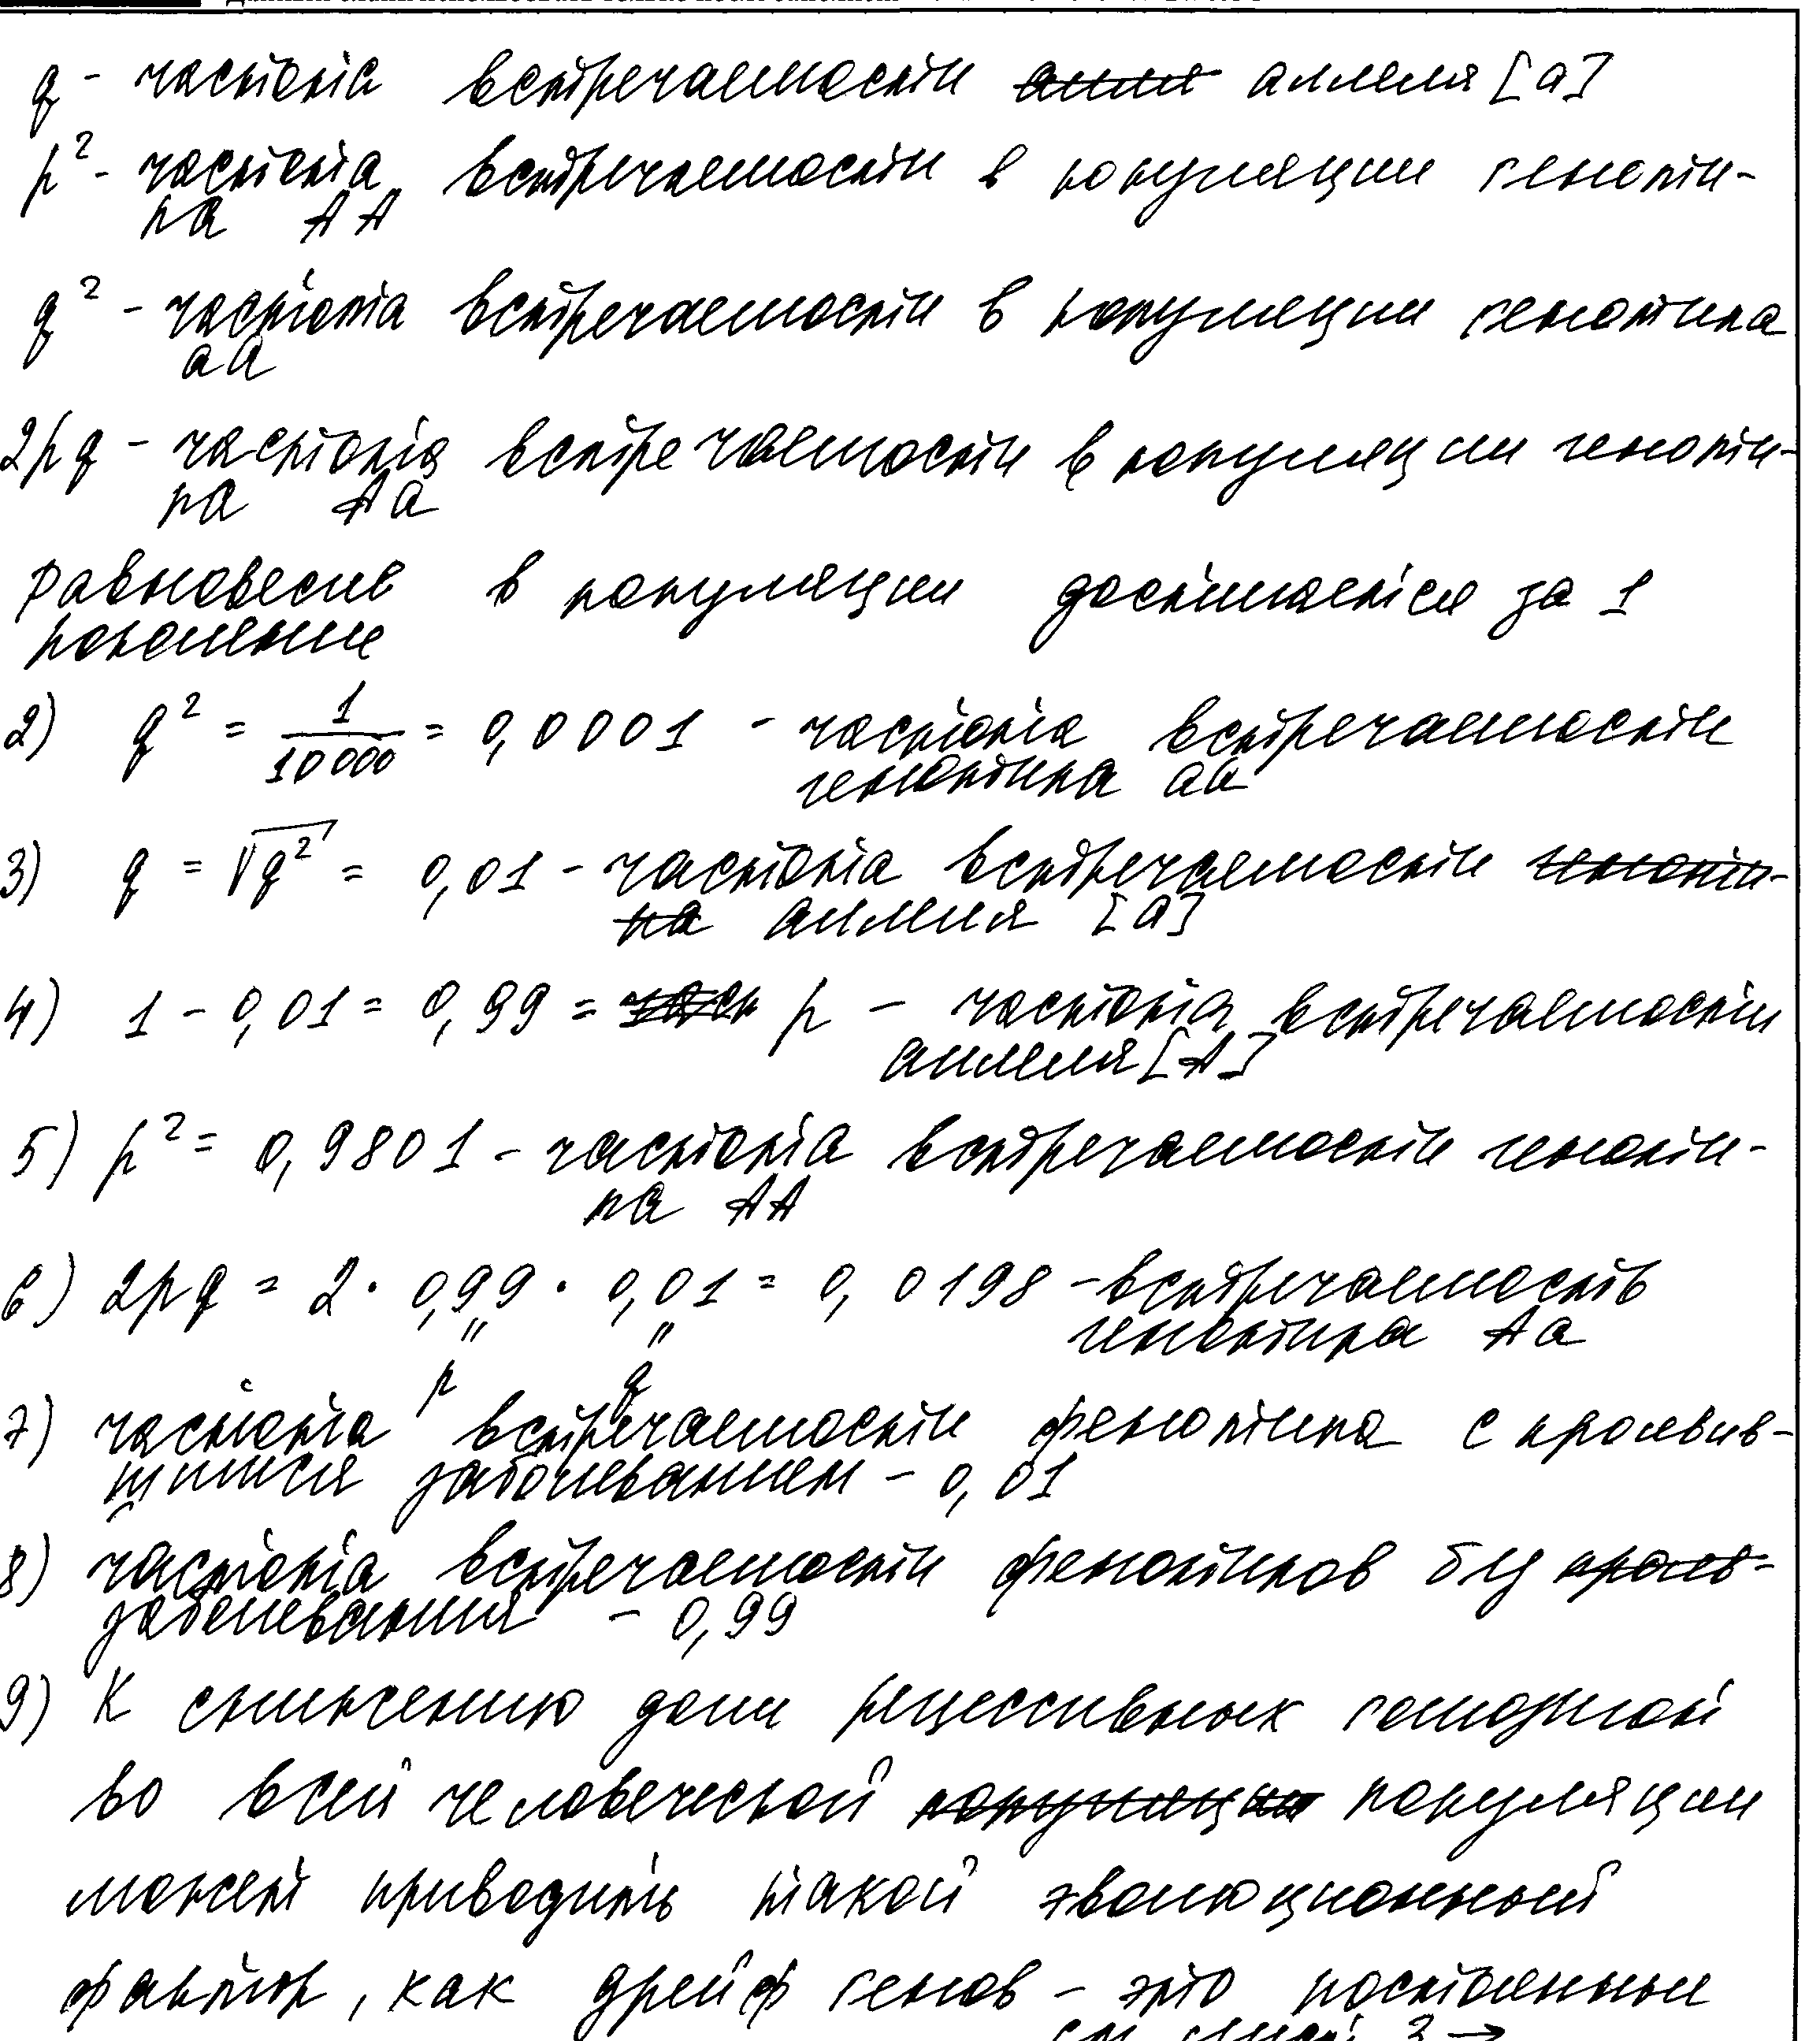 q - частота встречаемости алле аллеля [a]
p² - частота встречаемости в популяции геноти-
па AA
q² - частота встречаемости в популяции генотипа
aa
2pq - частота встречаемости в популяции геноти-
па Aa
Равновесие в популяции достигается за 1
поколение
2) q² = 1/10000 = 0,0001 - частота встречаемости
генотипа aa
3) q = √q² = 0,01 - частота встречаемости геноти-
па аллеля [a]
4) 1 - 0,01 = 0,99 = част p - частота встречаемости
аллеля [A]
5) p² = 0,9801 - частота встречаемости геноти-
па AA
6) 2pq = 2 · 0,99 · 0,01 = 0,0198 - встречаемость
генотипа Aa
" "
p q
7) частота встречаемости фенотипа с проявив-
шимся заболеванием - 0,01
8) частота встречаемости фенотипов без прояв-
заболевания - 0,99
9) К снижению доли рецессивных гомозигот
во всей человеческой популяции популяции
может приводить такой эволюционный
фактор, как дрейф генов - это постоянные
см. лист 2 →